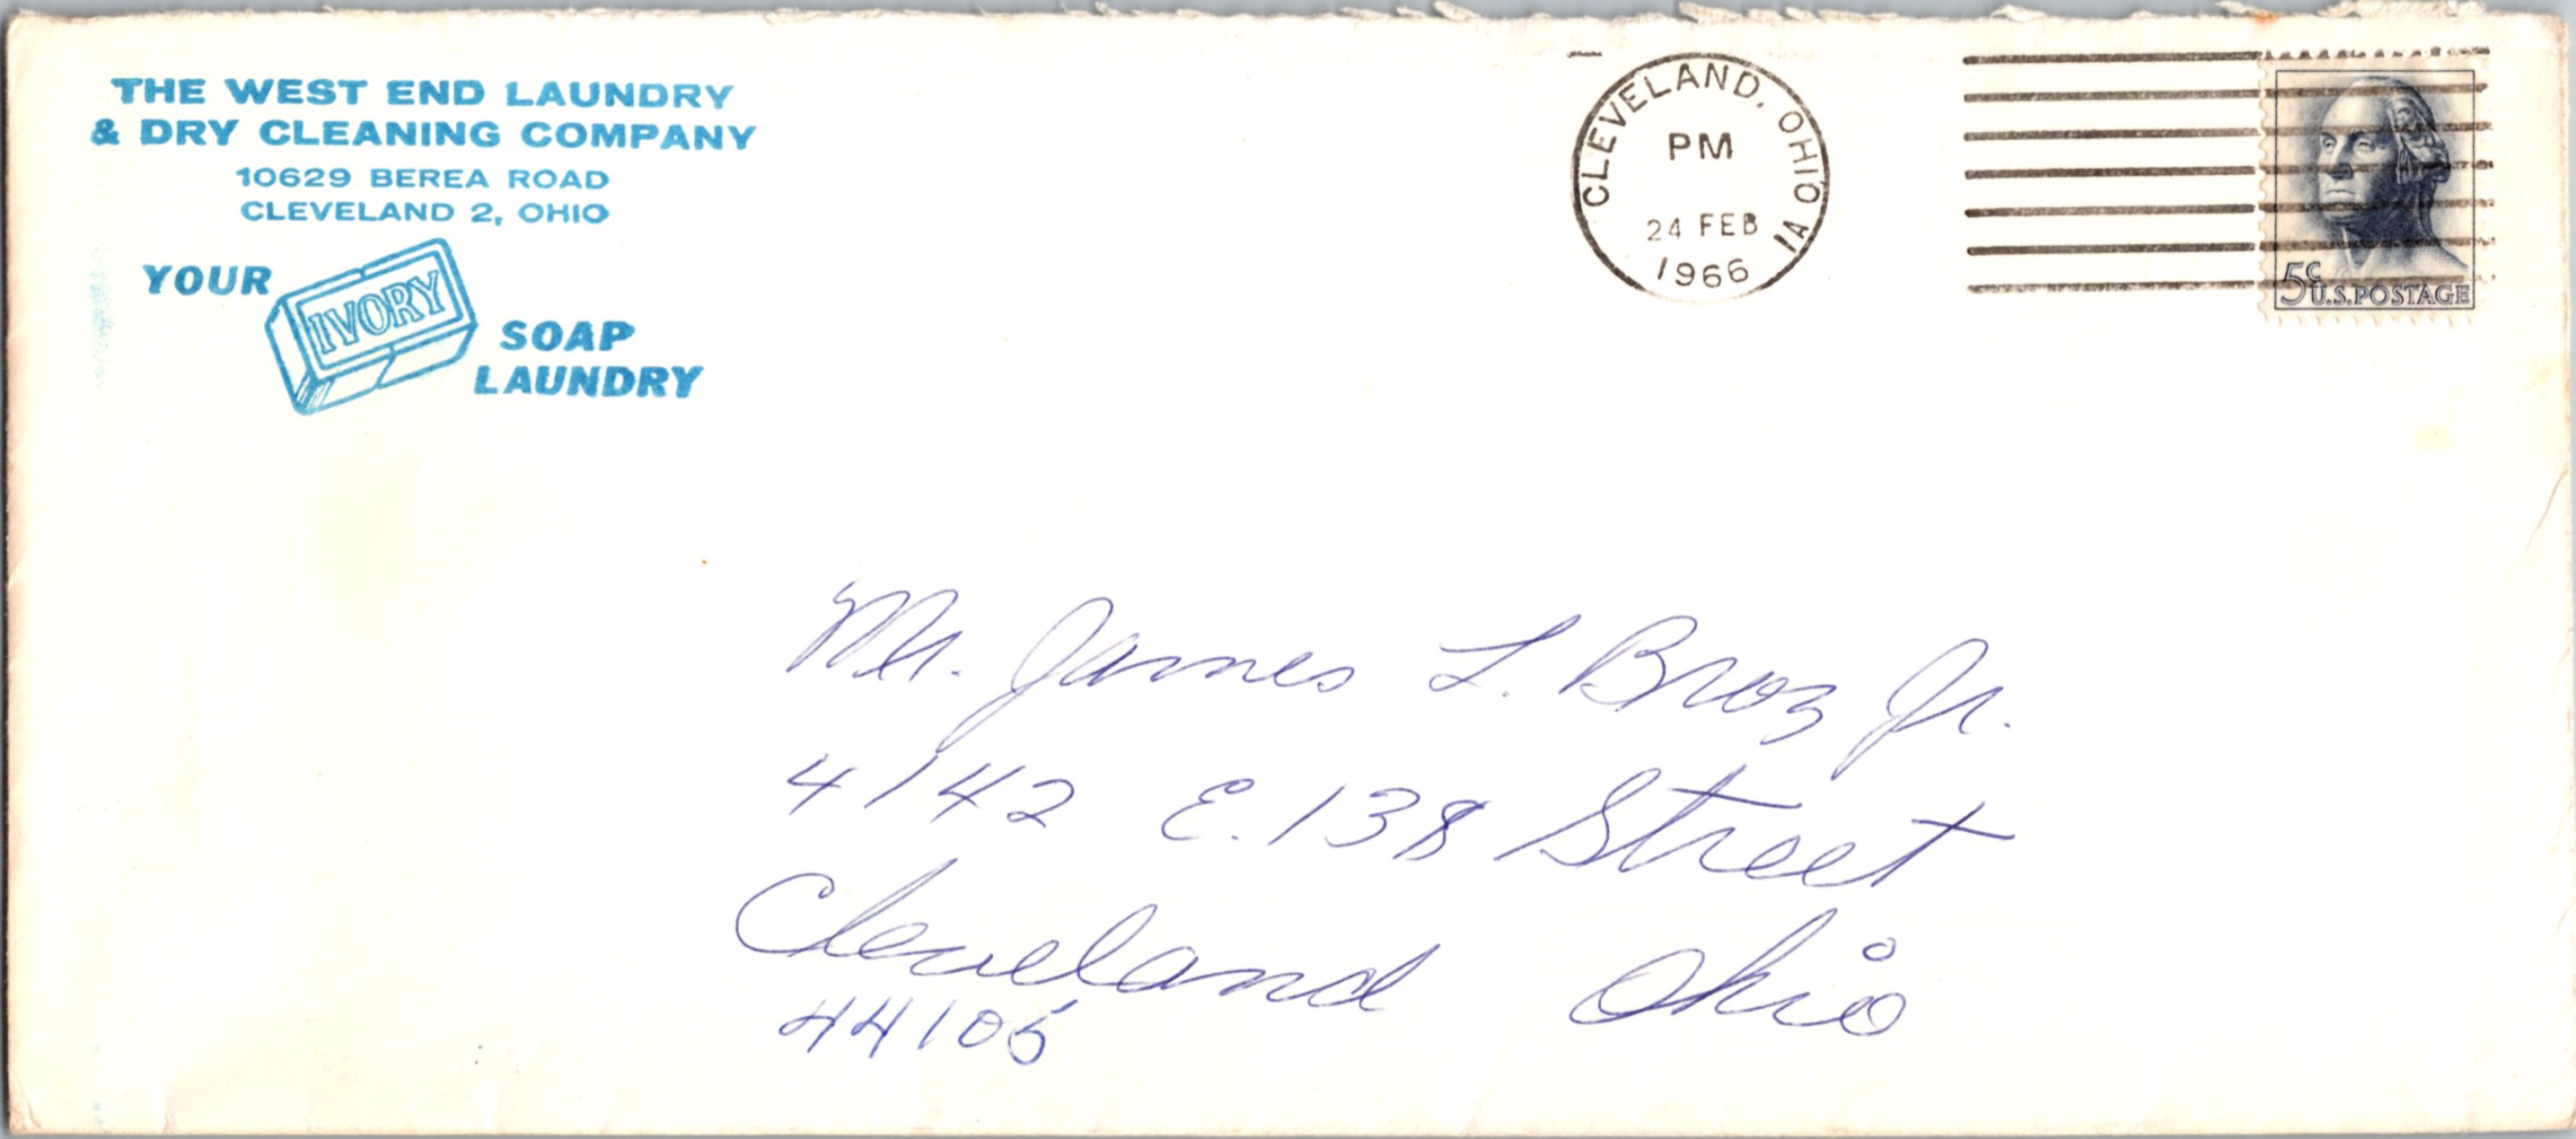 THE WEST END LAUNDRY
& DRY CLEANING COMPANY
10629 BEREA ROAD
CLEVELAND 2, OHIO
YOUR
IVORY
SOAP
LAUNDRY
CLEVELAND, OHIO 1A
PM
24 FEB
1966
5c
U.S. POSTAGE
Mr. James L. Broz Jr.
4142 E. 138 Street
Cleveland Ohio
44105